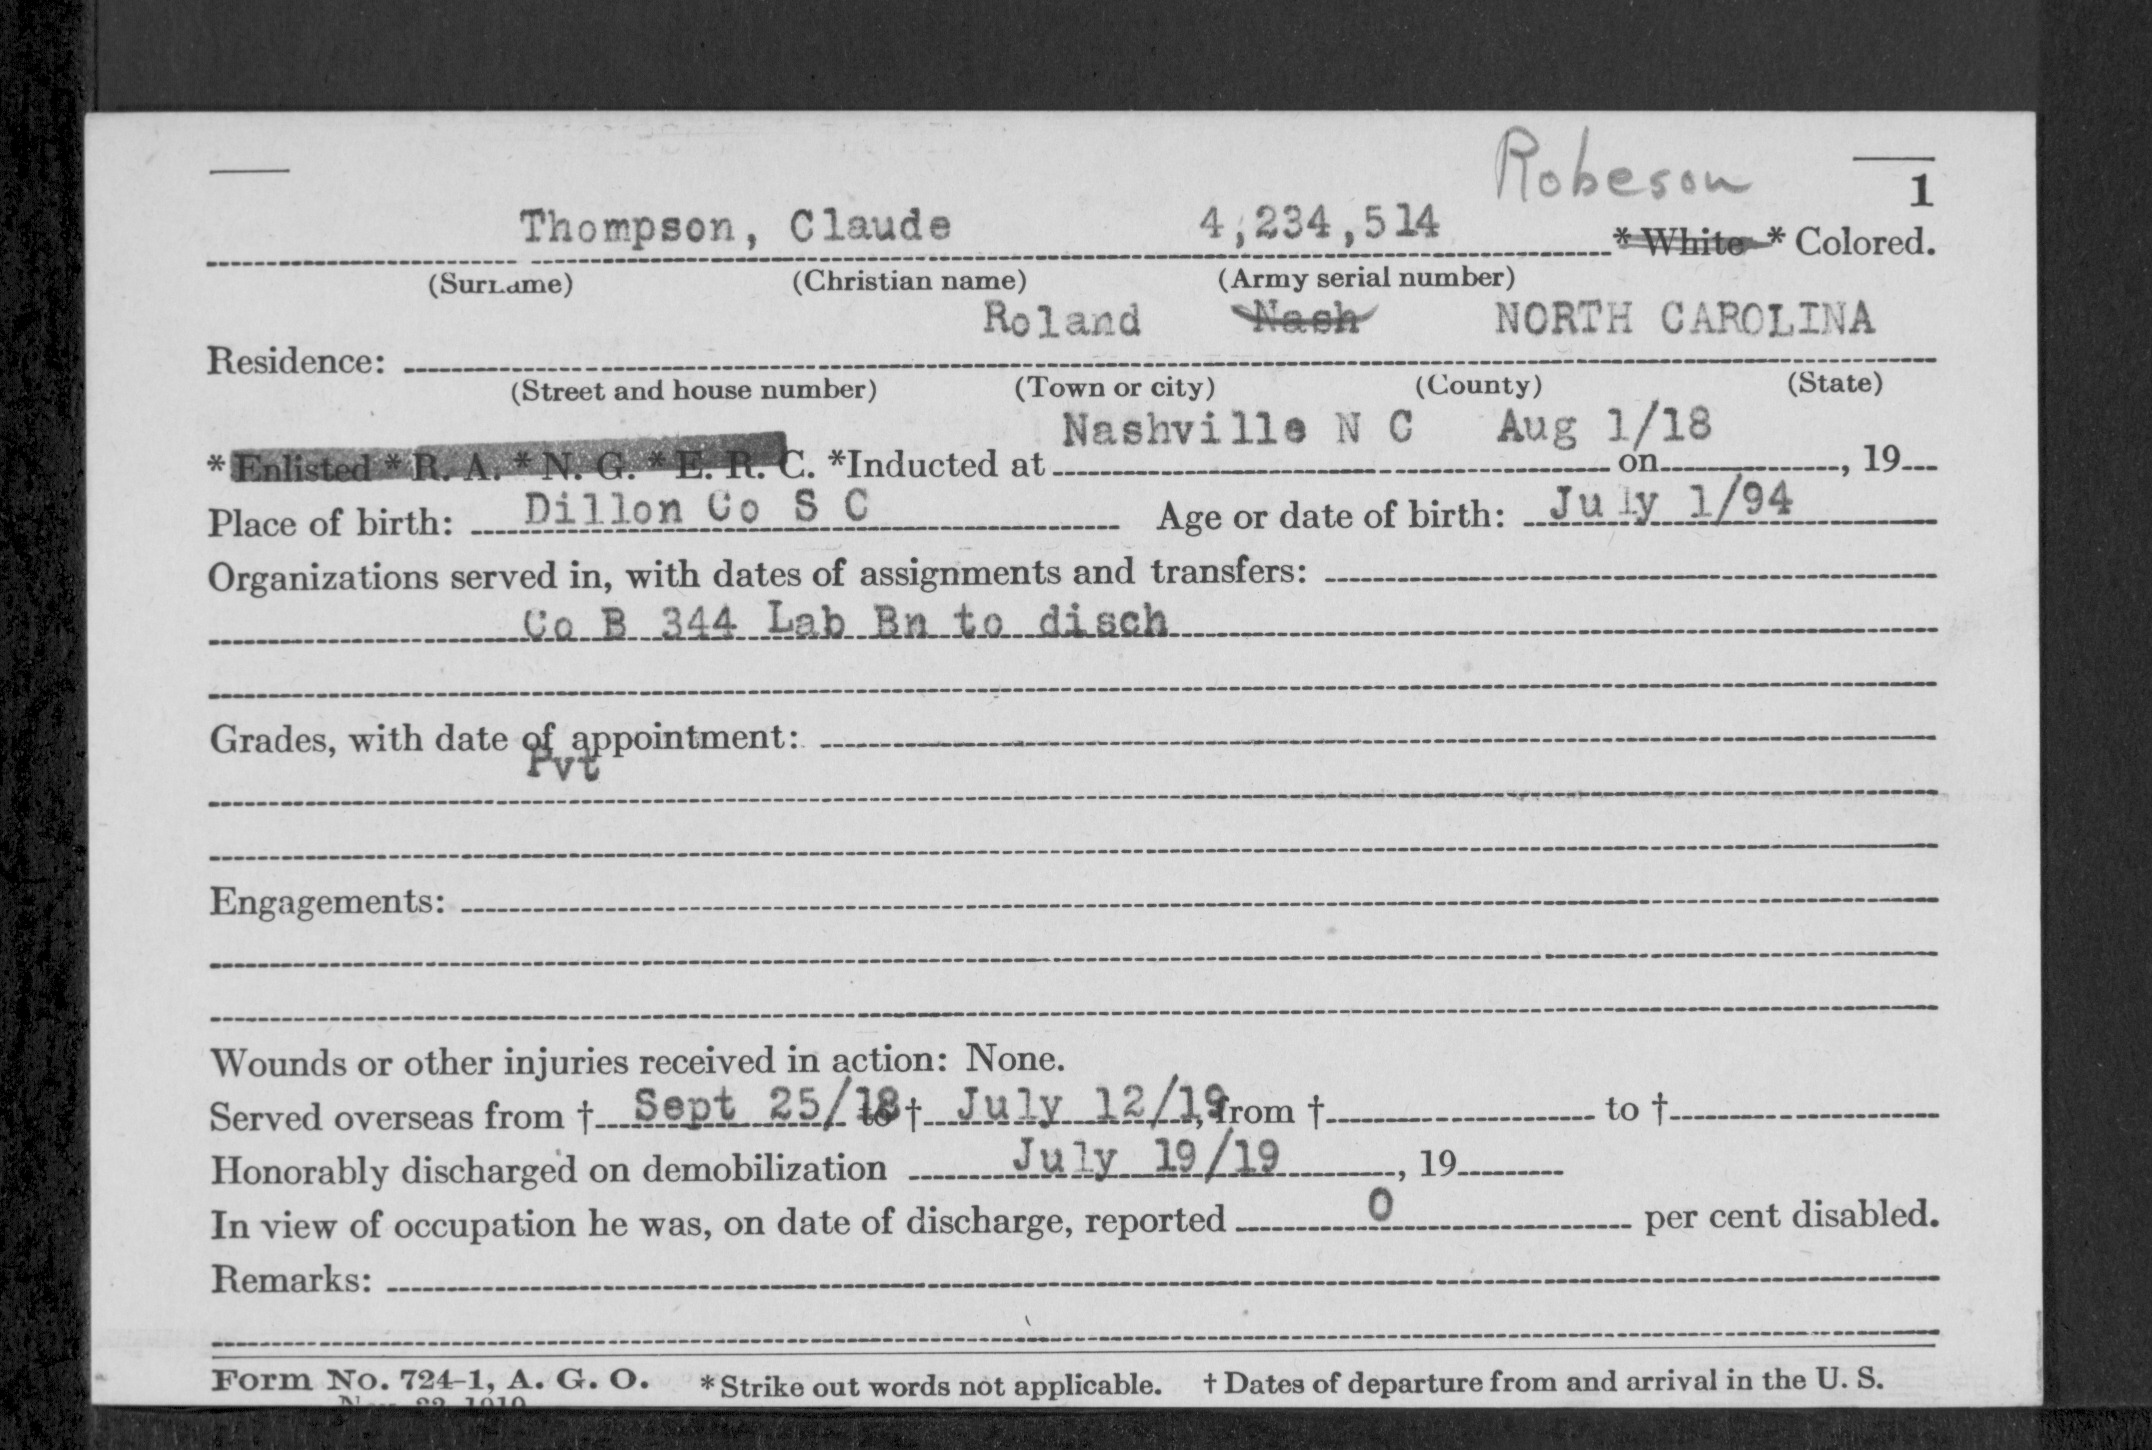 Robeson
1
Thompson, Claude 4,234,514 * White * Colored.
(Surname) (Christian name) (Army serial number)
Roland Nash NORTH CAROLINA
Residence:
(Street and house number) (Town or city) (County) (State)
Nashville N C Aug 1/18
* Enlisted * R. A. * N. G. * E. R. C. *Inducted at on , 19
Place of birth: Dillon Co S C Age or date of birth: July 1/94
Organizations served in, with dates of assignments and transfers:
Co B 344 Lab Bn to disch
Grades, with date of appointment:
Pvt
Engagements:
Wounds or other injuries received in action: None.
Served overseas from † Sept 25/18 to † July 12/19, from † to †
Honorably discharged on demobilization July 19/19, 19
In view of occupation he was, on date of discharge, reported 0 per cent disabled.
Remarks:
Form No. 724-1, A. G. O. *Strike out words not applicable. † Dates of departure from and arrival in the U. S.